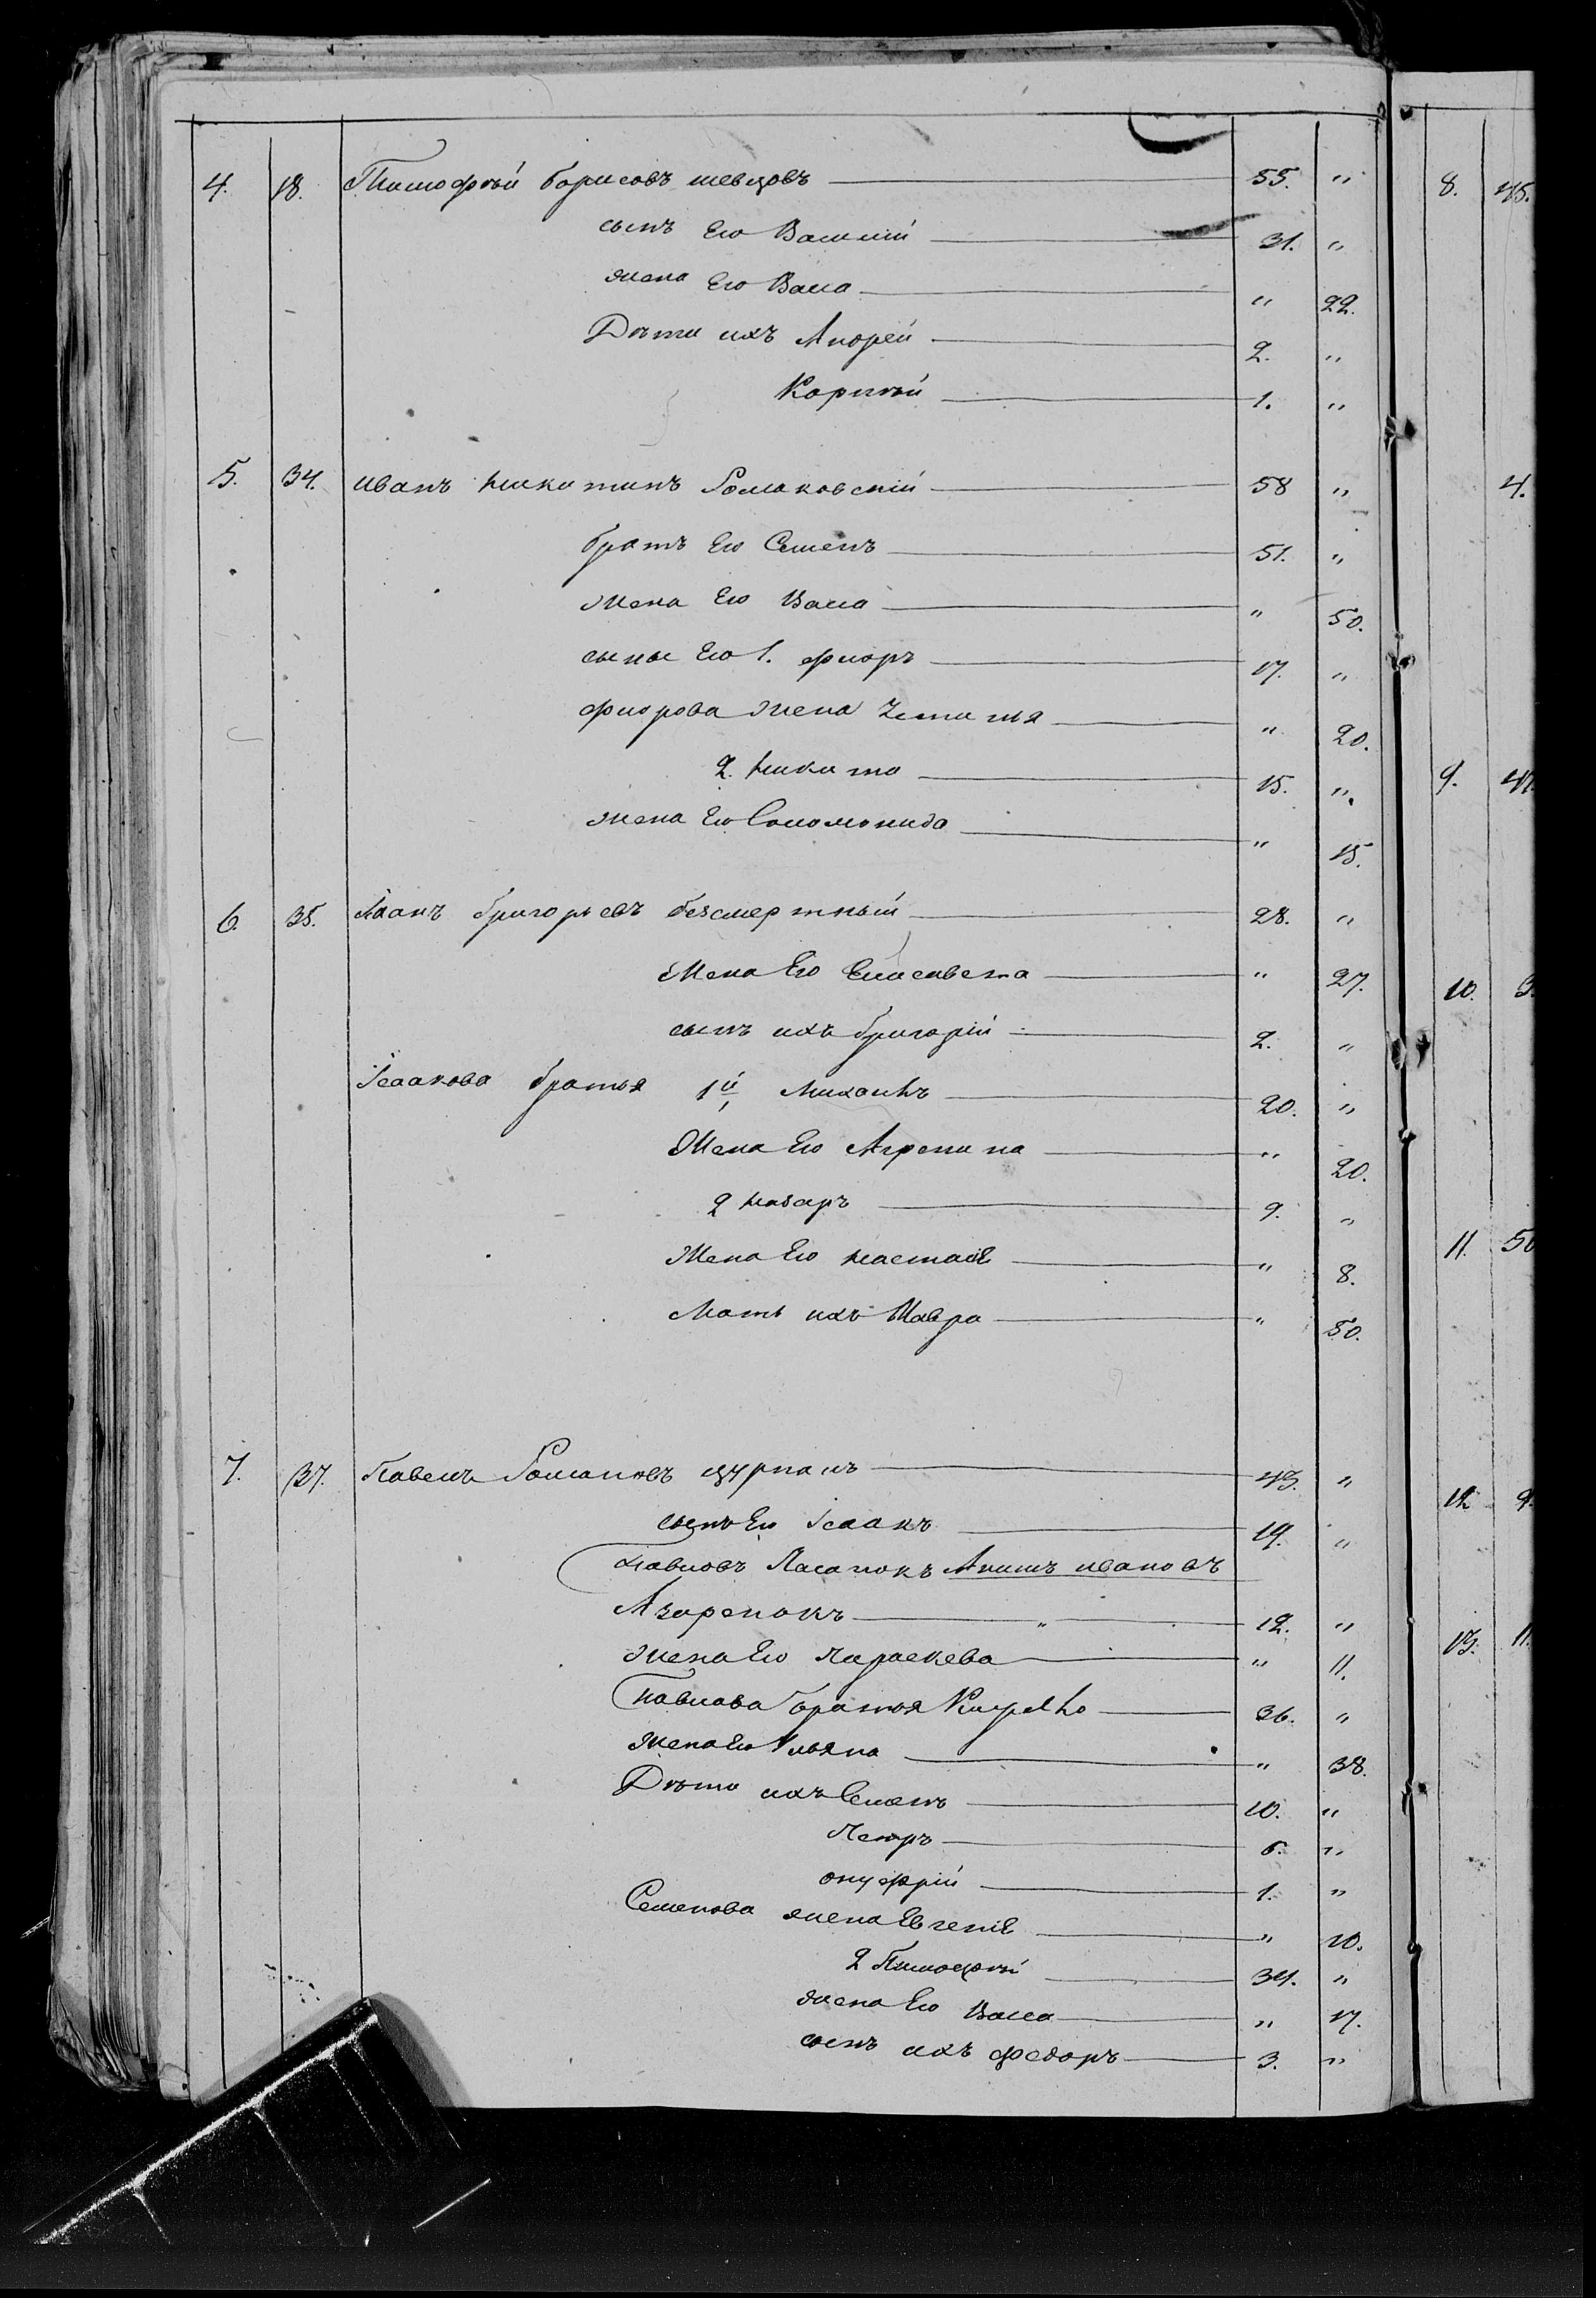 4. 18. Тимофѣй борисовъ шевцовъ 55. "
сынъ Его Василій 31. "
жена Его Васса " 22.
Дѣти ихъ Андрей 2. "
Корнѣй 1. "
5. 34. иванъ никитинъ Ромаковскій 58 "
братъ Его Семенъ 51. "
жена Его Васса " 50.
сыны Его 1. флоръ 17. "
флорова жена " 20.
2. никита 15. "
жена Его Соломонида " 15.
6. 35. Исаакъ григорьевъ безсмертный 28. "
Жена Его Елисавета " 27.
сынъ ихъ григорій 2. "
Исаакова братья 1й Михаилъ 20. "
Жена Его Агрепина " 20.
2 назаръ 9. "
Жена Его настасія " 8.
Мать ихъ Мавра " 50.
7. 37. Павелъ Романовъ цурпанъ 43. "
сынъ Его Исаакъ 19. "
Павловъ Пасанокъ ивановъ
Азаренокъ " 12. "
жена Его параскева " 11.
Павлова братья Кирило 36. "
жена Его Ульяна " 38.
Дѣти ихъ Семенъ 10. "
Петръ 6. "
онуфрій 1. "
Семенова жена Евгенія " 10.
2 Тимофѣй 34. "
жена Его Васса " 17.
сынъ ихъ федоръ 3. "
8. 45.
4.
9.
10.
11. 50
12 9.
13. 11.